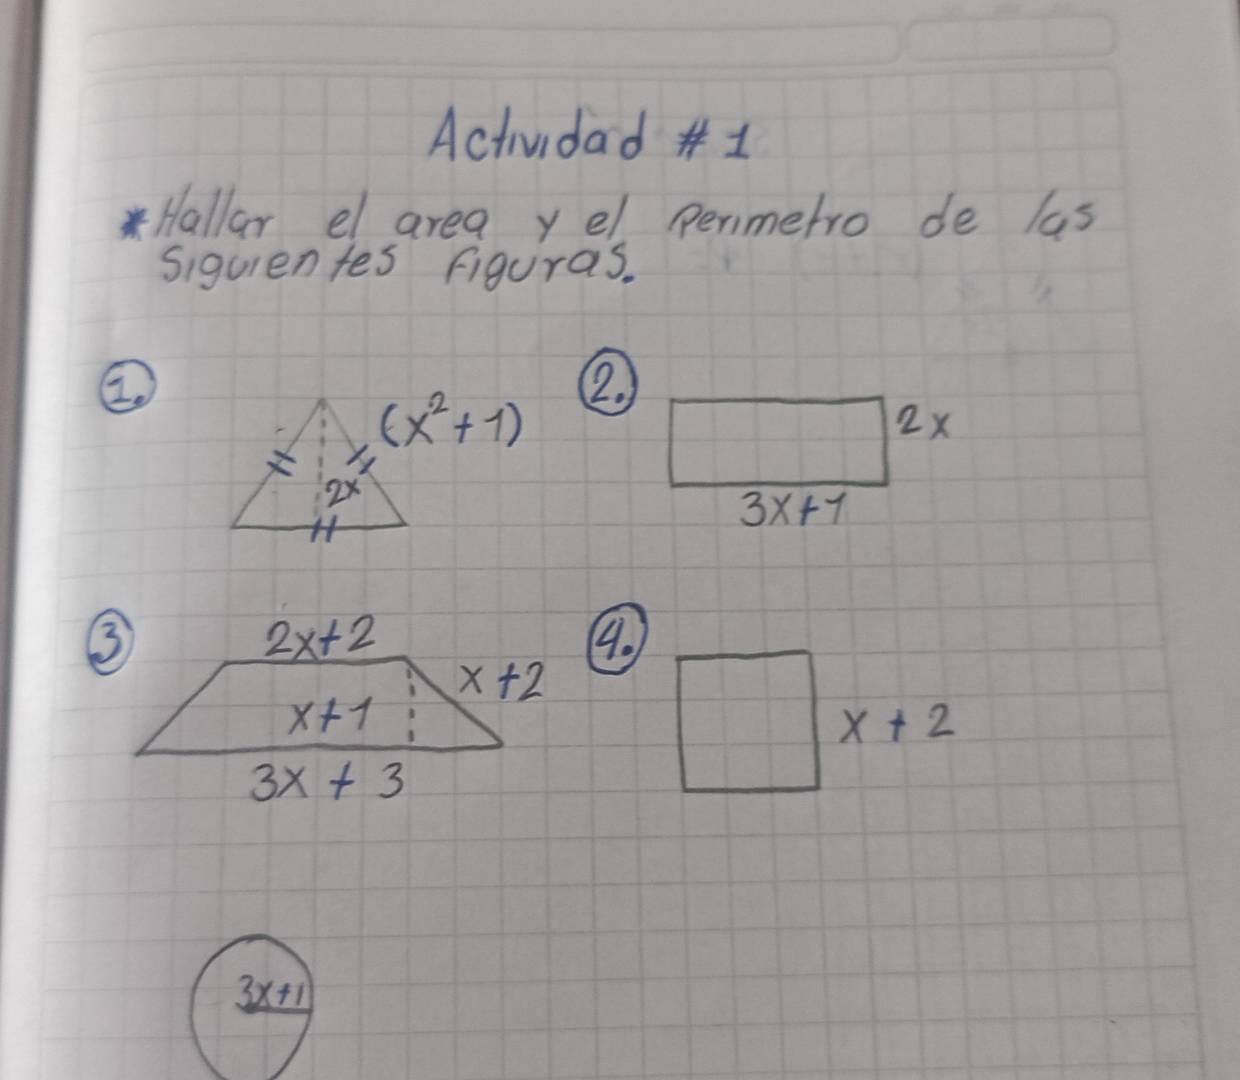 Actividad # 1
*Hallar el area y el Perimetro de las
Siguientes Figuras.
1.
(x²+1)
2x
2.
2x
3x+1
3
2x+2
x+2
x+1
3x + 3
4.
x + 2
3x+1